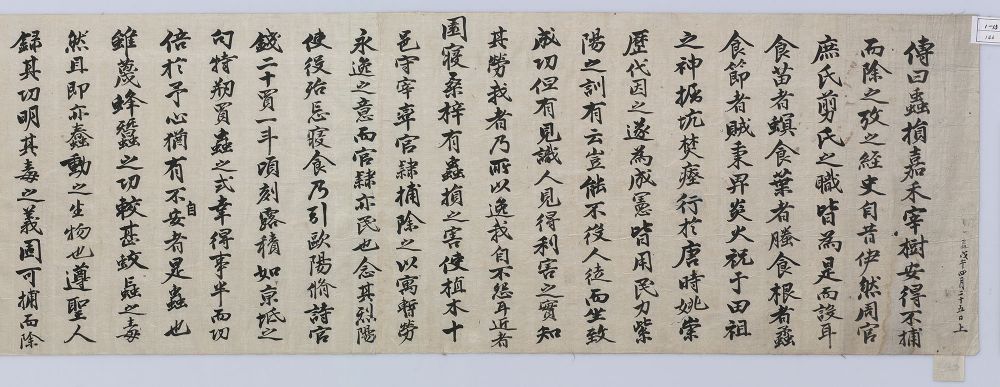 傳曰蟲損嘉禾宰樹安得不捕
而除之攷之經史自昔伊然周官
庶氏剪氏之職皆為是而設耳
食苗者螟食葉者螣食根者蟊
食節者賊秉畀炎火祝于田祖
之神掘坑焚瘞行於唐時姚崇
歷代因之遂為成憲皆用民力紫
陽之訓有云豈能不役人徒而坐致
成功但有見識人見得利害之實知
其勞我者乃所以逸我自不怨耳近者
園寢桑梓有蟲損之害使植木十
邑守宰率官隸捕除之以寓暫勞
永逸之意而官隸亦民也念其烈陽
使役殆忘寢食乃引歐陽脩詩官
錢二十買一斗頃刻露積如京坻之
句特刱買蟲之式幸得事半而功
倍於予心猶有不自安者是蟲也
雖蔑蜂蠶之功較甚蚊蝱之毒
然且即亦蠢動之生物也遵聖人
錄其功明其毒之義固可捕而除
戊午四月二十五日上